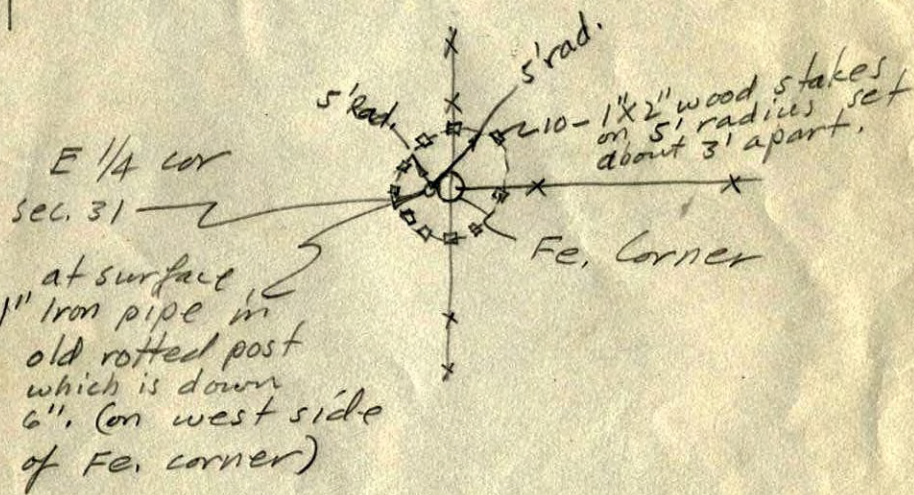 5' rad.
5' Rad.
10 - 1"X2" wood stakes
on 5' radius set
about 3' apart.
E 1/4 cor
sec. 31
Fe. Corner
at surface
1" Iron pipe in
old rotted post
which is down
6". (on west side
of Fe. corner)